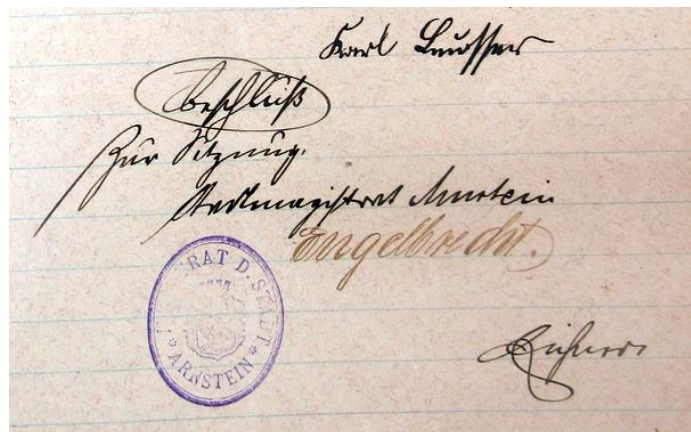 Karl
Beschluß
Zur Sitzung.
Stadtmagistrat Arnstein
Engelbrecht.
RAT D. STADT
* ARNSTEIN *